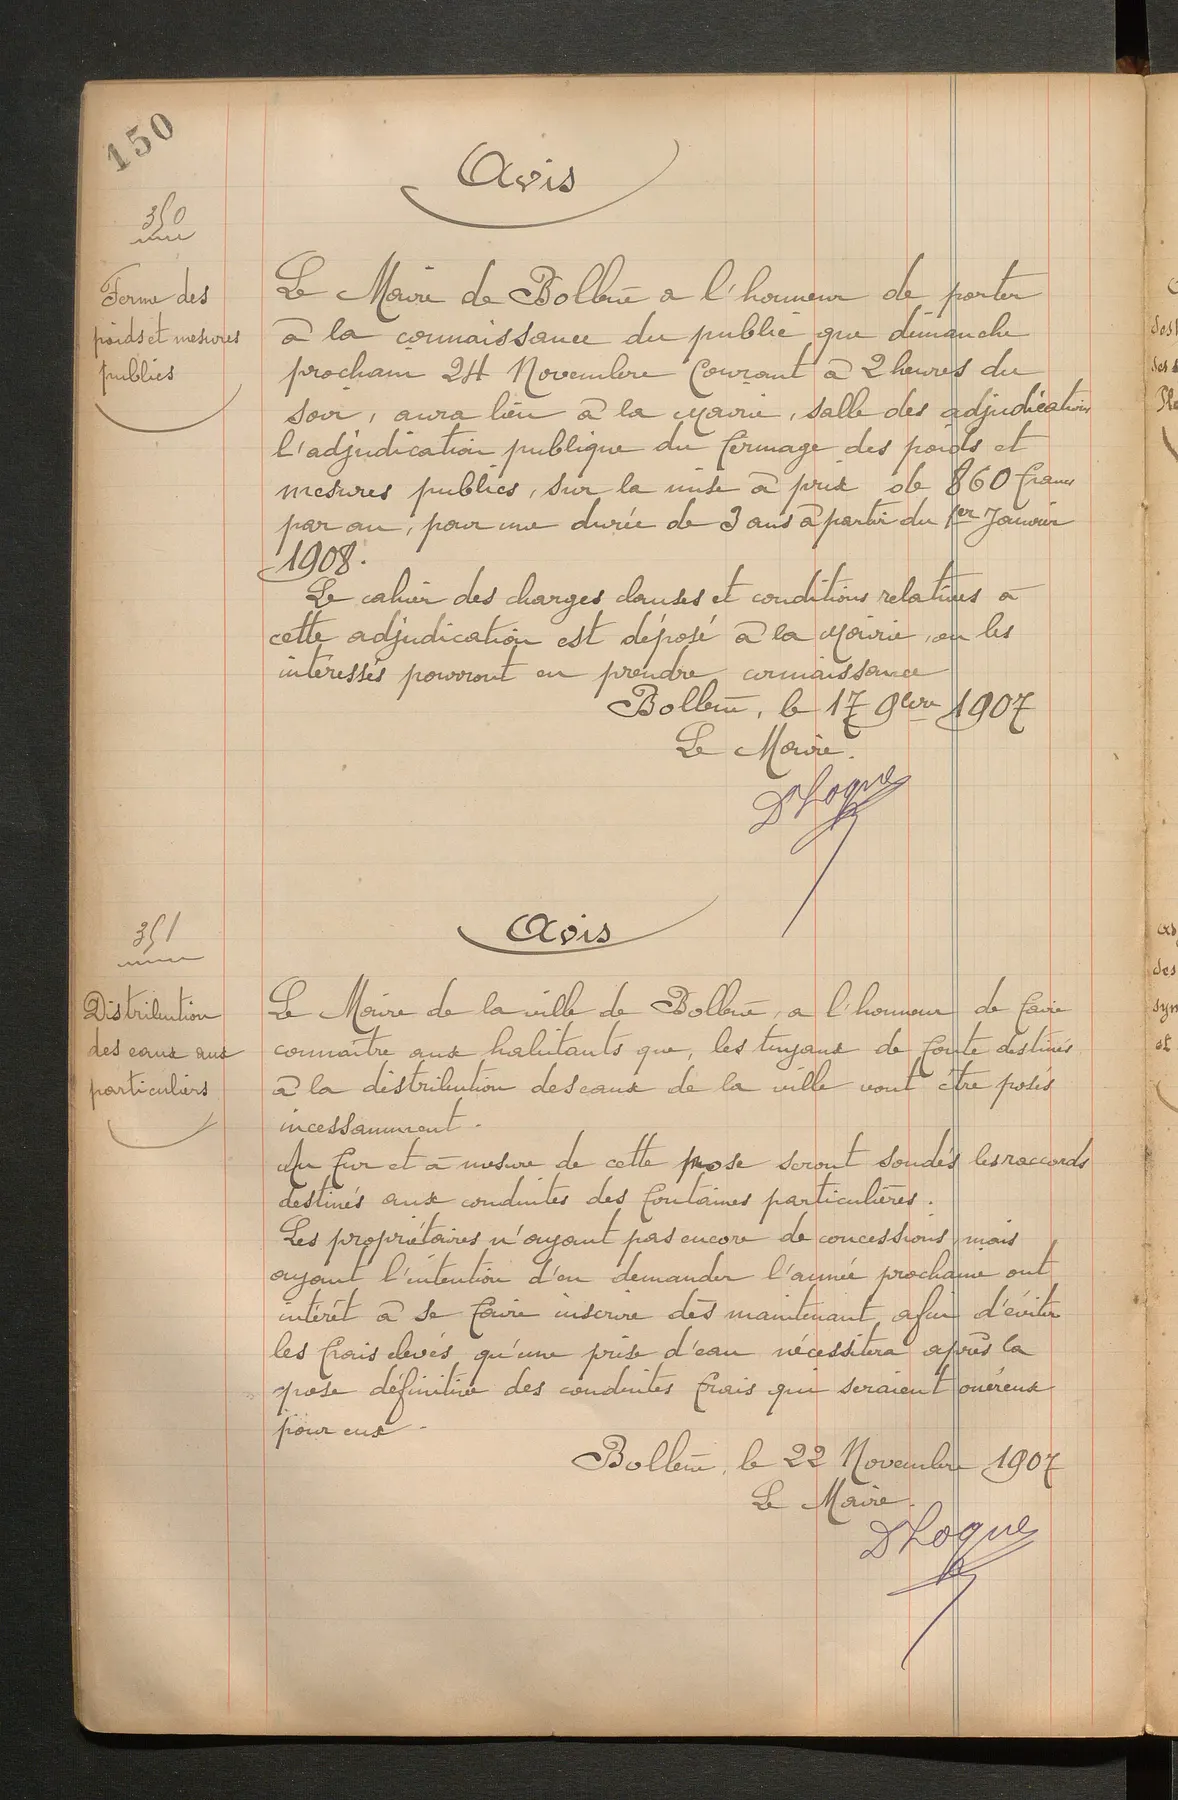 150
Avis
350
Ferme des
poids et mesures
publics
Le Maire de Bollène a l'honneur de porter
à la connaissance du public que dimanche
prochain 24 Novembre Courant à 2 heures du
soir, aura lieu à la Mairie, salle des adjudications
l'adjudication publique du fermage des poids et
mesures publics, sur la mise à prix de 860 francs
par an, pour une durée de 3 ans à partir du 1er Janvier
1908.
Le cahier des charges clauses et conditions relatives à
cette adjudication est déposé à la Mairie, ou les
intéressés pourront en prendre connaissance
Bollène, le 17 9bre 1907
Le Maire.
351
Avis
Distribution
des eaux aux
particuliers
Le Maire de la ville de Bollène, a l'honneur de faire
connaître aux habitants que, les tuyaux de fonte destinés
à la distribution des eaux de la ville vont être posés
incessamment.
Au fur et à mesure de cette pose seront soudés les raccords
destinés aux conduites des fontaines particulières.
Les propriétaires n'ayant pas encore de concessions, mais
ayant l'intention d'en demander l'année prochaine ont
intérêt à se faire inscrire dès maintenant, afin d'éviter
les frais élevés qu'une prise d'eau nécessitera après la
pose définitive des conduites frais qui seraient onéreux
pour eux.
Bollène, le 22 Novembre 1907
Le Maire.